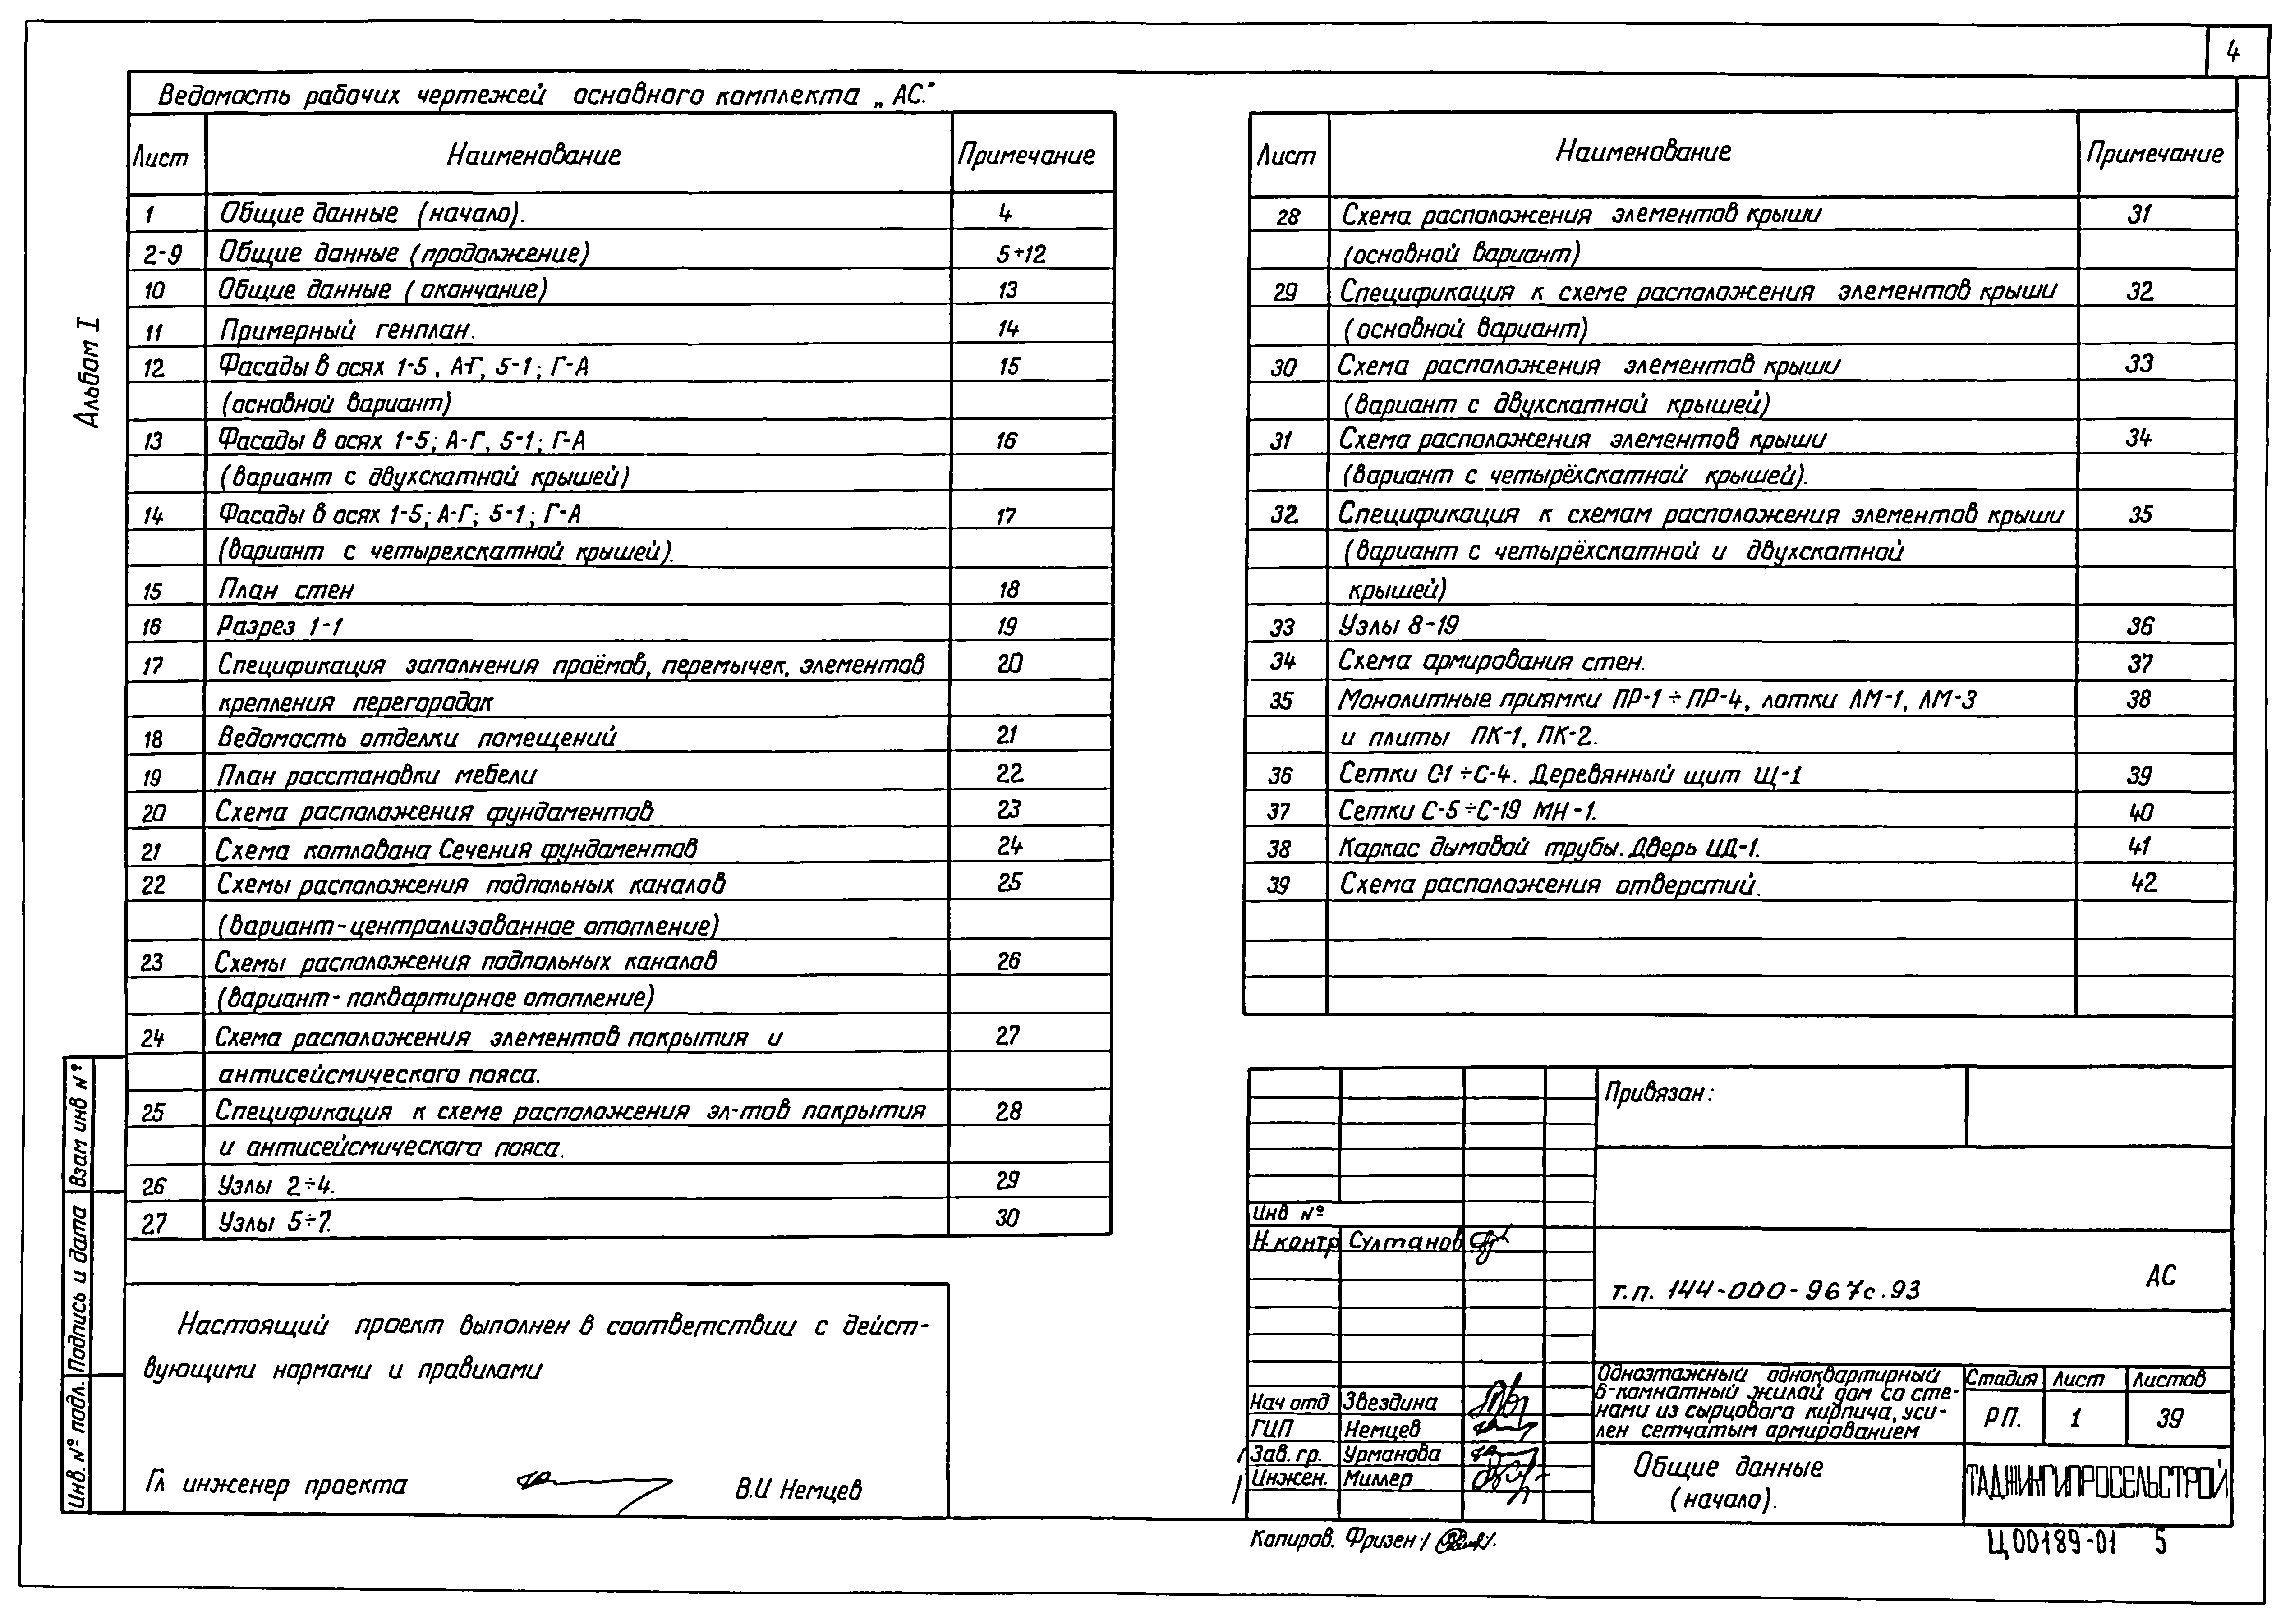 4
Альбом I
Ведомость рабочих чертежей основного комплекта „АС."
Лист Наименование Примечание
1 Общие данные (начало). 4
2-9 Общие данные (продолжение) 5÷12
10 Общие данные (окончание) 13
11 Примерный генплан. 14
12 Фасады в осях 1-5, А-Г, 5-1; Г-А 15
(основной вариант)
13 Фасады в осях 1-5; А-Г, 5-1; Г-А 16
(вариант с двухскатной крышей)
14 Фасады в осях 1-5; А-Г; 5-1; Г-А 17
(вариант с четырехскатной крышей).
15 План стен 18
16 Разрез 1-1 19
17 Спецификация заполнения проёмов, перемычек, элементов 20
крепления перегородок
18 Ведомость отделки помещений 21
19 План расстановки мебели 22
20 Схема расположения фундаментов 23
21 Схема котлована Сечения фундаментов 24
22 Схемы расположения подпольных каналов 25
(вариант-централизованное отопление)
23 Схемы расположения подпольных каналов 26
(вариант-поквартирное отопление)
24 Схема расположения элементов покрытия и 27
антисейсмического пояса.
25 Спецификация к схеме расположения эл-тов покрытия 28
и антисейсмического пояса.
26 Узлы 2÷4. 29
27 Узлы 5÷7. 30
Лист Наименование Примечание
28 Схема расположения элементов крыши 31
(основной вариант)
29 Спецификация к схеме расположения элементов крыши 32
(основной вариант)
30 Схема расположения элементов крыши 33
(вариант с двухскатной крышей)
31 Схема расположения элементов крыши 34
(вариант с четырёхскатной крышей).
32 Спецификация к схемам расположения элементов крыши 35
(вариант с четырёхскатной и двухскатной
крышей)
33 Узлы 8-19 36
34 Схема армирования стен. 37
35 Монолитные приямки ПР-1÷ПР-4, лотки ЛМ-1, ЛМ-3 38
и плиты ПК-1, ПК-2.
36 Сетки С1÷С-4. Деревянный щит Щ-1 39
37 Сетки С-5÷С-19 МН-1. 40
38 Каркас дымовой трубы. Дверь ИД-1. 41
39 Схема расположения отверстий. 42
Настоящий проект выполнен в соответствии с дейст-
вующими нормами и правилами
Гл инженер проекта В.И Немцев
Взам инв №
Подпись и дата
Инв. № подл.
Привязан:
Инв №
Н. контр Султанов
т.п. 144-000-967с.93 АС
Нач отд Звездина
ГИП Немцев
Зав. гр. Урманова
Инжен. Миллер
Одноэтажный одноквартирный
6-комнатный жилой дом со сте-
нами из сырцового кирпича, уси-
лен сетчатым армированием
Стадия Лист Листов
РП. 1 39
Общие данные
(начало).
ТАДЖИКГИПРОСЕЛЬСТРОЙ
Капиров. Фризен
Ц00189-01 5